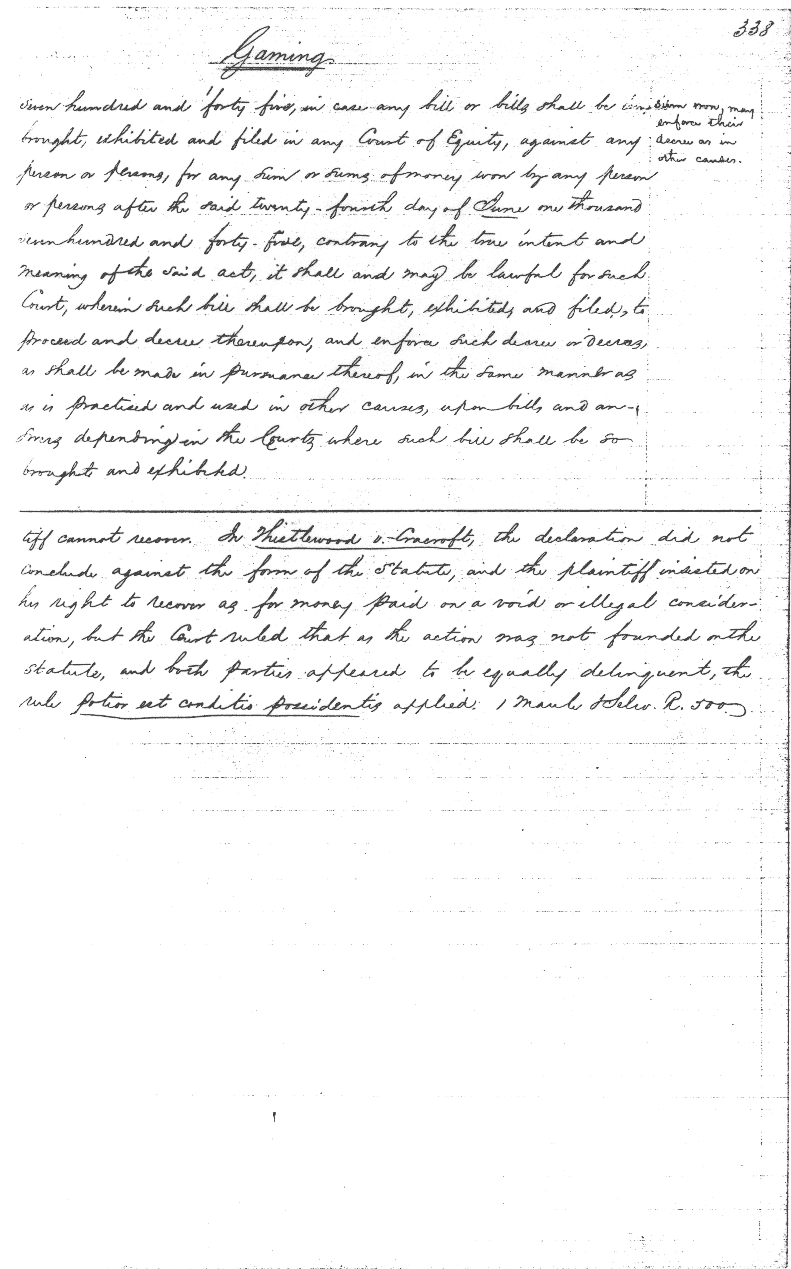 338
Gaming
seven hundred and forty five, in case any bill or bills shall be
brought, exhibited and filed in any Court of Equity, against any
person or persons, for any sum or sums of money won by any person
or persons after the said twenty-fourth day of June one thousand
seven hundred and forty-five, contrary to the true intent and
meaning of the said act, it shall and may be lawful for such
Court, wherein such bill shall be brought, exhibited, and filed, to
proceed and decree thereupon, and enforce such decree or decrees,
as shall be made in pursuance thereof, in the same manner as
as is practised and used in other causes, upon bills and an-
swers depending in the Courts where such bill shall be so
brought and exhibited.
sum won, may
enforce their
decree as in
other causes.
tiff cannot recover. In Thistlewood v. Cracroft, the declaration did not
conclude against the form of the statute, and the plaintiff insisted on
his right to recover as for money paid on a void or illegal consider-
ation, but the Court ruled that as the action was not founded on the
statute, and both parties appeared to be equally delinquent, the
rule potior est conditio possidentis applied. 1 Maule & Selw. R. 500